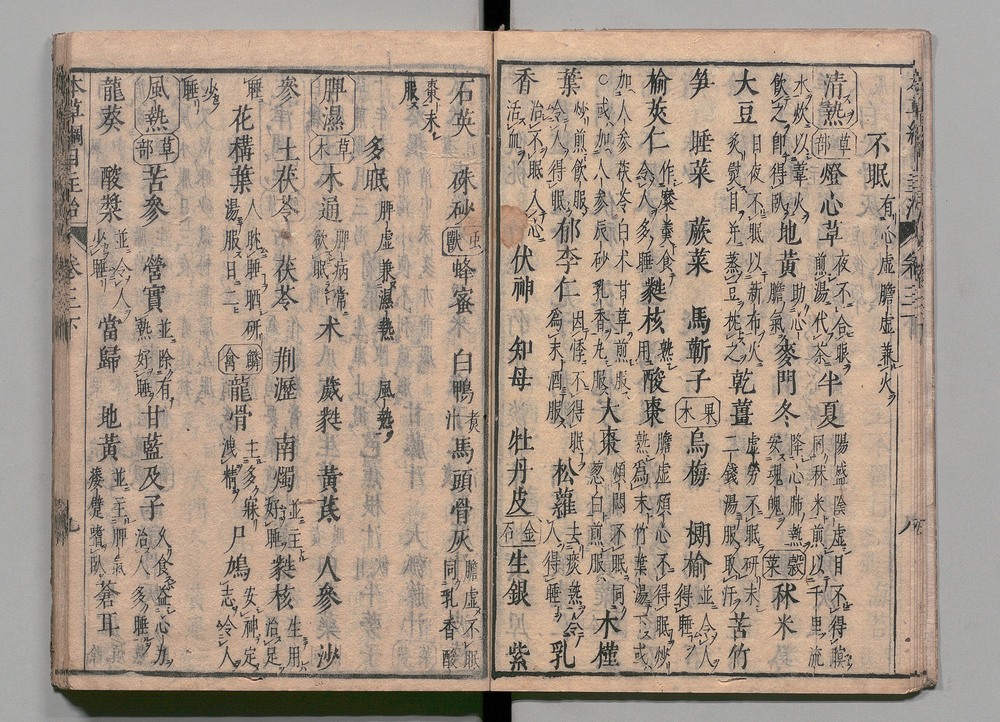 不眠 有心虚膽虚兼火
清熱 草部 燈心草 夜不合眼煎湯代茶 半夏 陽盛陰虚目不得瞑同秫米煎以千里流
水炊以葦火飲之即得臥 地黄 助心膽氣 麥門冬 除心肺熱安魂魄 穀菜 秫米
大豆 日夜不眠以新布火炙熨目并蒸豆枕之 乾薑 虚勞不眠研末二錢湯服取汗 苦竹
笋 睡菜 蕨菜 馬蘄子 果木 烏梅 榔榆 並令人得睡
榆莢仁 作糜羹食令人多睡 蕤核 熟用 酸棗 膽虚煩心不得眠炒熟為末竹葉湯下或
加人参茯苓白术甘草煎服○或加人参辰砂乳香丸服 大棗 煩悶不眠同葱白煎服 木槿
葉 炒煎飲服令人得眠 郁李仁 因悸不得眠為末酒服 松蘿 去痰熱令人得睡 乳
香 治不眠入心活血 伏神 知母 牡丹皮 金石 生銀 紫
石英 硃砂 虫獸 蜂蜜 白鴨 煮汁 馬頭骨灰 膽虚不眠同乳香酸
棗末服
多眠 脾虚兼濕熱 風熱
脾濕 草木 木通 脾病常欲眠 术 葳蕤 黄芪 人參 沙
參 土茯苓 茯苓 荆瀝 南燭 並主好睡 蕤核 生用治足
睡 花構葉 人耽睡晒研湯服日二 鱗禽 龍骨 主多寐洩精 尸鳩 安神定志令人
少睡
風熱 草部 苦參 營實 並除有熱好睡 甘藍及子 久食益心力治人多睡
龍葵 酸漿 並令人少睡 當歸 地黄 並主脾氣痿躄嗜臥 蒼耳
本草綱目主治 卷三下 九